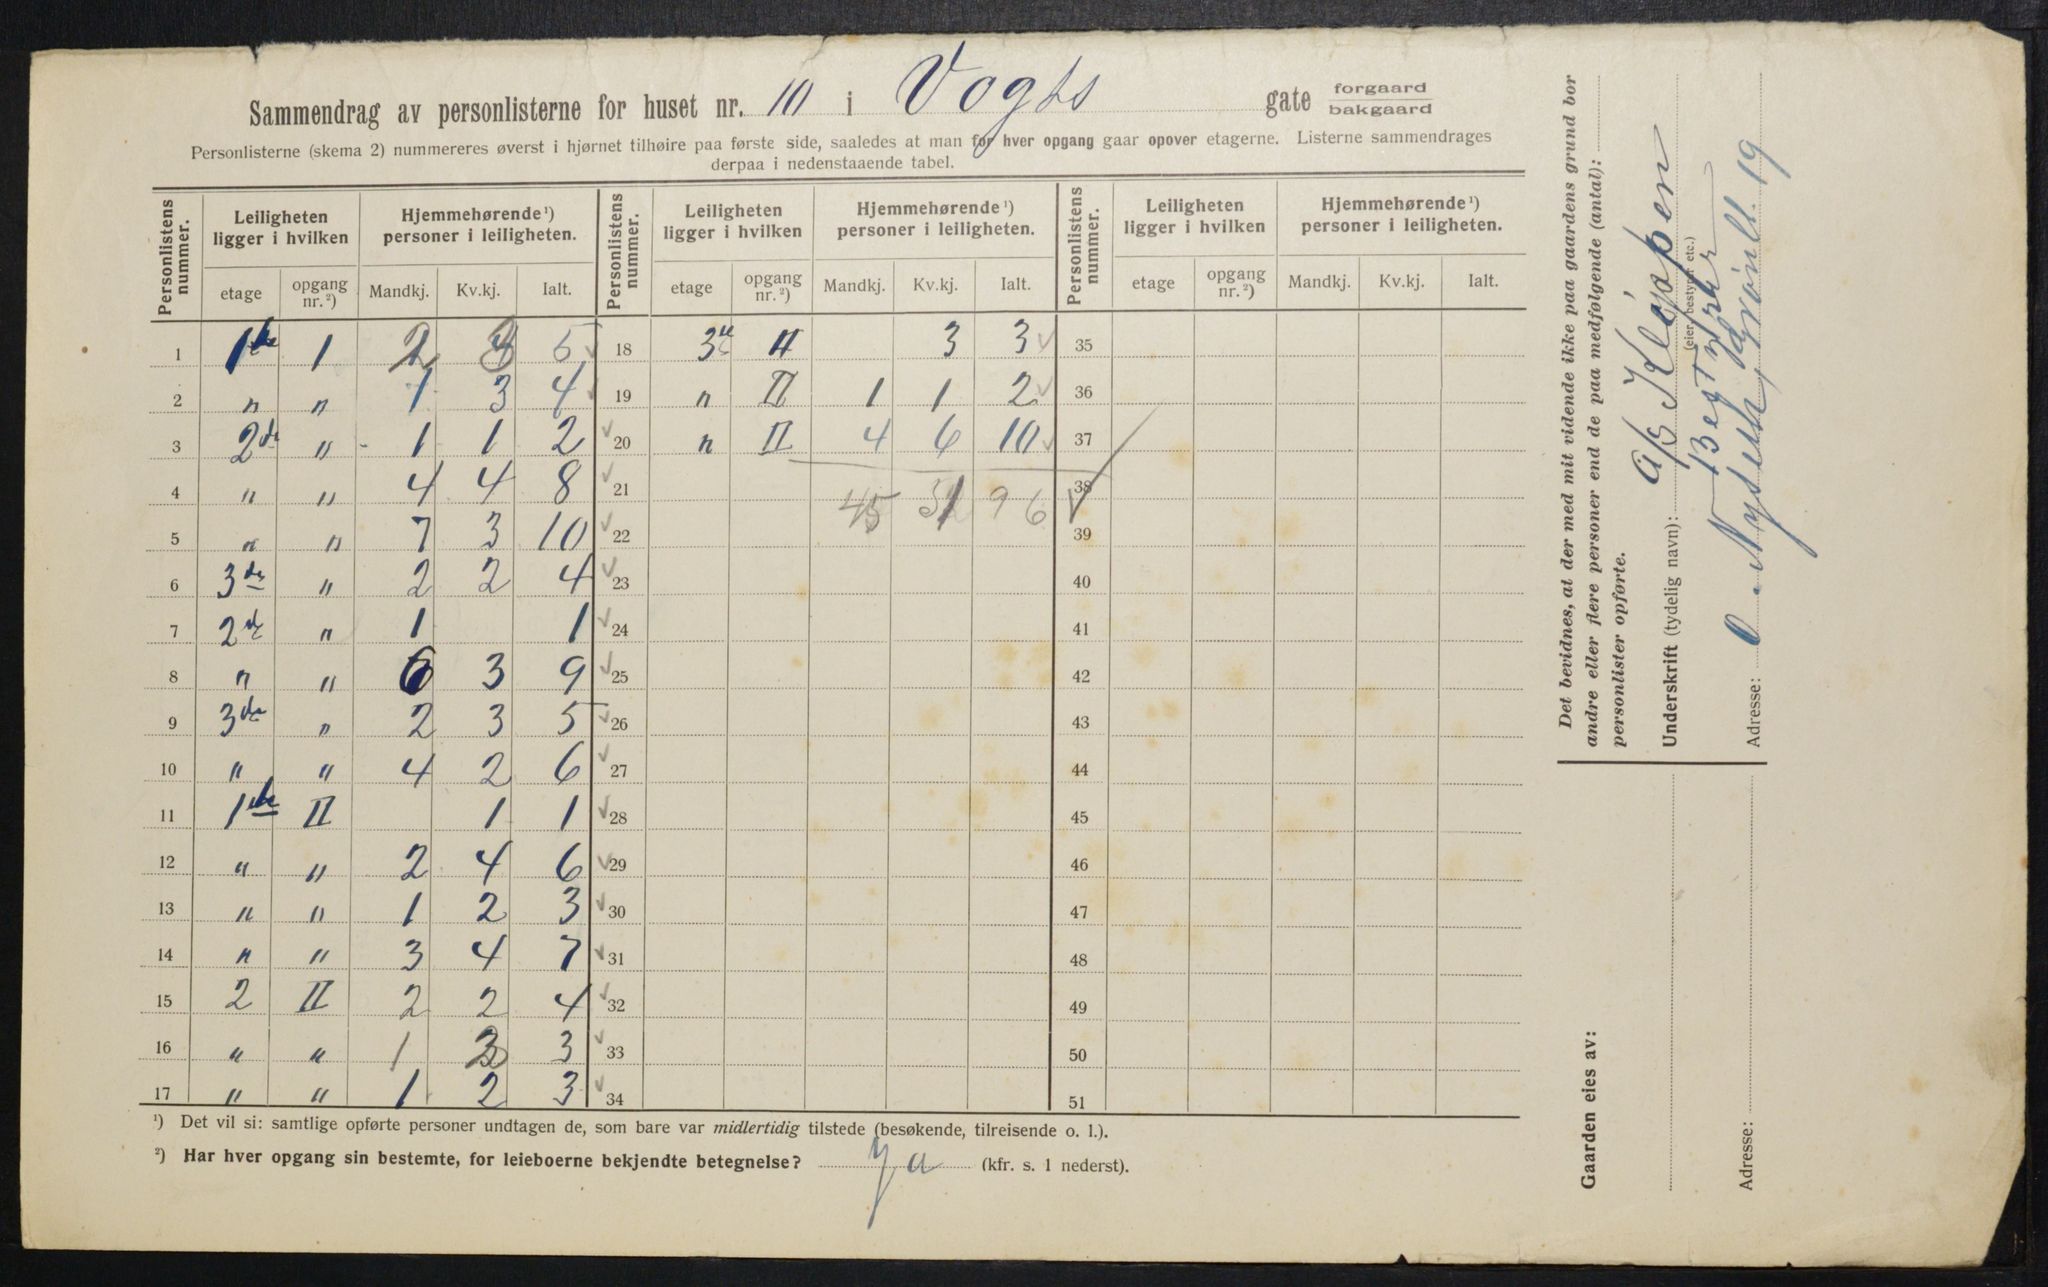 Sammendrag av personlisterne for huset nr. 10 i Vogts gate forgaard bakgaard
Personlisterne (skema 2) nummereres øverst i hjørnet tilhøire paa første side, saaledes at man for hver opgang gaar opover etagerne. Listerne sammendrages
derpaa i nedenstaaende tabel.
Personlistens nummer. Leiligheten ligger i hvilken Hjemmehørende¹) personer i leiligheten. Personlistens nummer. Leiligheten ligger i hvilken Hjemmehørende¹) personer i leiligheten. Personlistens nummer. Leiligheten ligger i hvilken Hjemmehørende¹) personer i leiligheten.
etage opgang nr.²) Mandkj. Kv.kj. Ialt. etage opgang nr.²) Mandkj. Kv.kj. Ialt. etage opgang nr.²) Mandkj. Kv.kj. Ialt.
1 1ste 1 2 3 5 18 3de II 3 3 35
2 " " 1 3 4 19 " II 1 1 2 36
3 2de " 1 1 2 20 " II 4 6 10 37
4 " " 4 4 8 21 45 51 96 38
5 " " 7 3 10 22 39
6 3de " 2 2 4 23 40
7 2de " 1 1 24 41
8 " " 6 3 9 25 42
9 3de " 2 3 5 26 43
10 " " 4 2 6 27 44
11 1ste II 1 1 28 45
12 " " 2 4 6 29 46
13 " " 1 2 3 30 47
14 " " 3 4 7 31 48
15 2 II 2 2 4 32 49
16 " " 1 2 3 33 50
17 " " 1 2 3 34 51
¹) Det vil si: samtlige opførte personer undtagen de, som bare var midlertidig tilstede (besøkende, tilreisende o. l.).
²) Har hver opgang sin bestemte, for leieboerne bekjendte betegnelse? Ja (kfr. s. 1 nederst).
Det bevidnes, at der med mit vidende ikke paa gaardens grund bor
andre eller flere personer end de paa medfølgende (antal):
personlister opførte.
A/S Kløppen
Underskrift (tydelig navn):
(eier, bestyrer etc.)
Adresse: 19
Gaarden eies av:
Adresse: